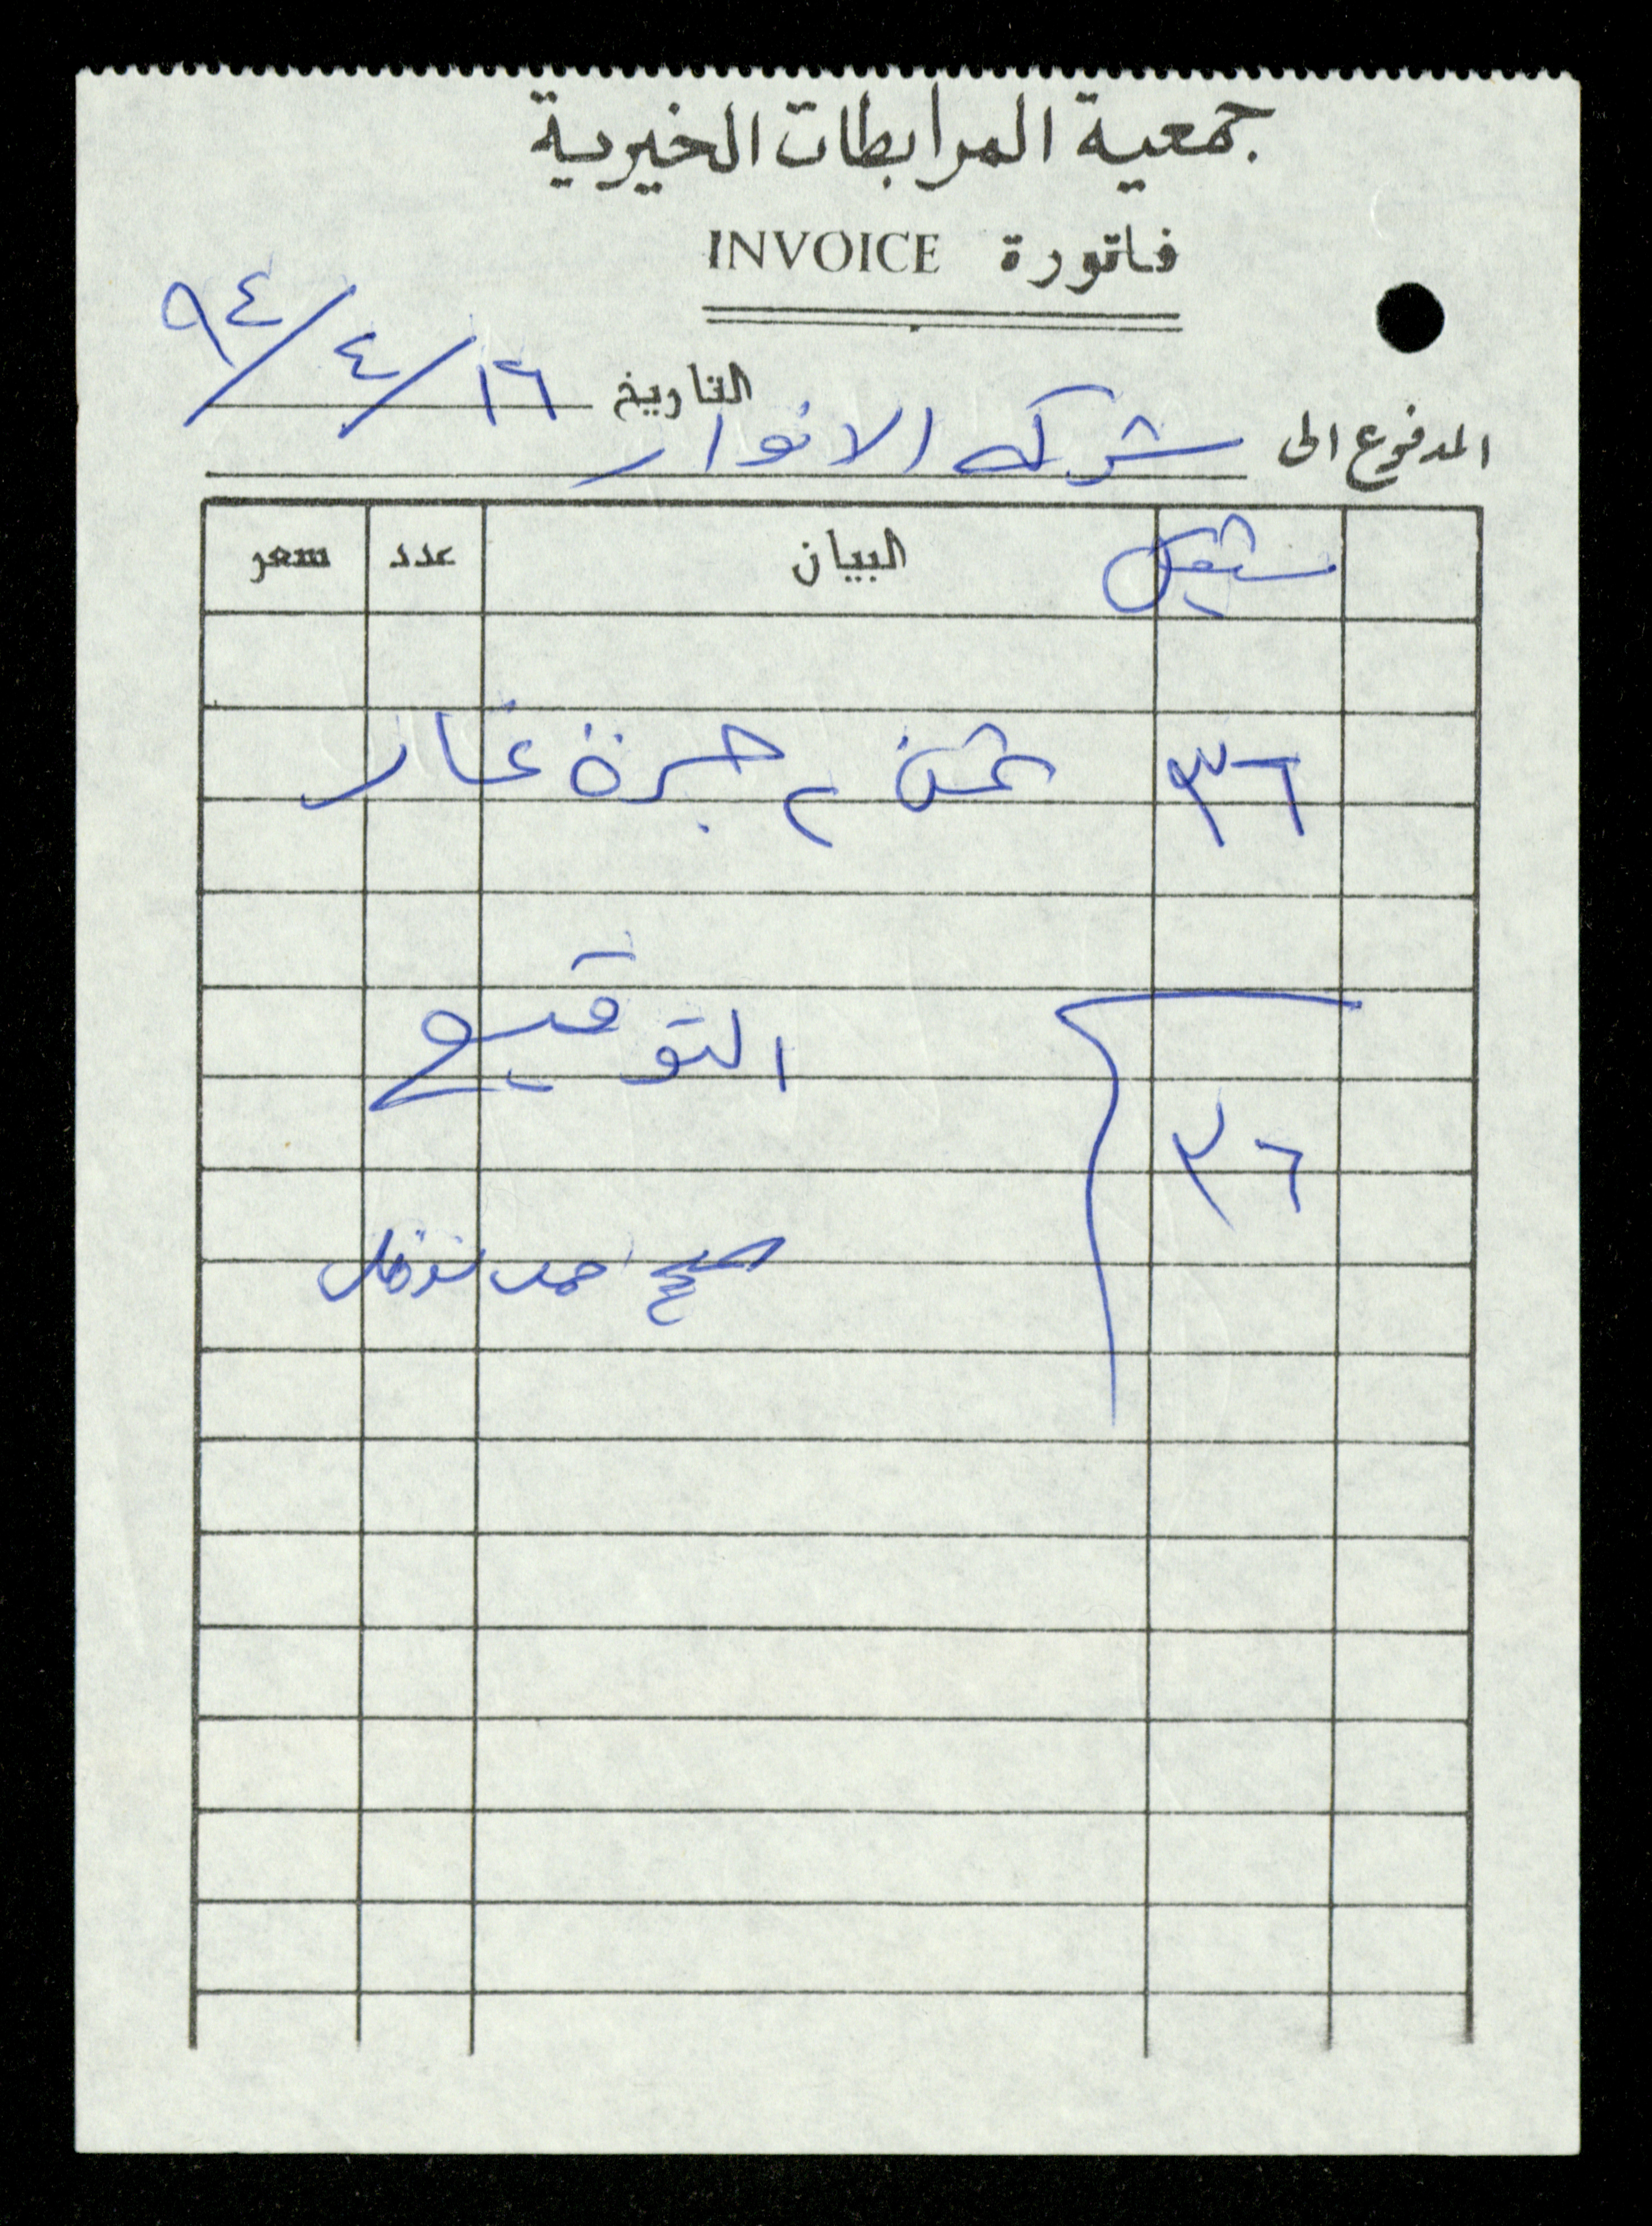 جمعية المرابطات الخيرية
فاتورة INVOICE
التاريخ ١٦/٤/٩٤
المدفوع الى شركه الانوار
شيقل البيان عدد سعر
٣٦ ثمن ٢ جرة غاز
التوقيع
٣٦
نوفل